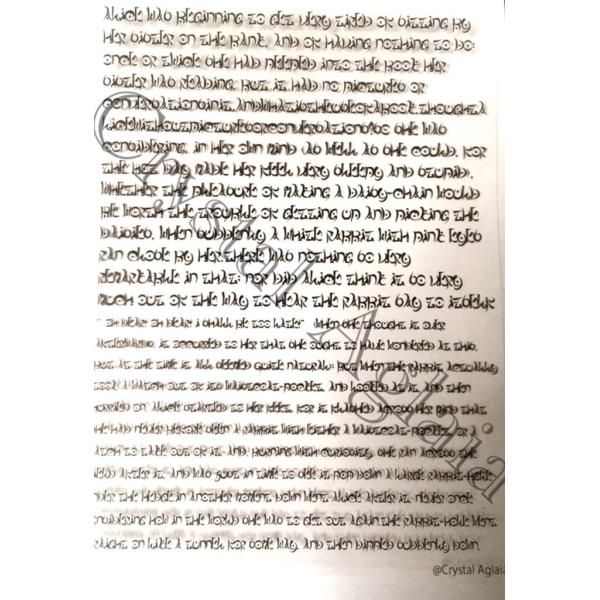 Alice was beginning to get very tired of sitting by
her sister on the bank, and of having nothing to do:
once or twice she had peeped into the book her
sister was reading, but it had no pictures or
conversations in it, and what is the use of a book, thought A
lice without pictures or conversations? So she was
considering, in her own mind (as well as she could, for
the hot day made her feel very sleepy and stupid),
whether the pleasure of making a daisy-chain would
be worth the trouble of getting up and picking the
daisies, when suddenly a White Rabbit with pink eyes
ran close by her there was nothing so very
remarkable in that; nor did Alice think it so very
much out of the way to hear the Rabbit say to itself
" Oh dear! Oh dear! I shall be too late!" when she thought it over
afterwards, it occurred to her that she ought to have wondered at this,
but at the time it all seemed quite natural; but when the Rabbit actually
took a watch out of its waistcoat-pocket, and looked at it, and then
hurried on, Alice started to her feet, for it flashed across her mind that
had never before seen a rabbit with either a waistcoat-pocket, or a
watch to take out of it, and burning with curiosity, she ran across the
field after it, and was just in time to see it pop down a large rabbit-hole
under the hedge in another moment down went Alice after it, never once
considering how in the world she was to get out again the rabbit-hole went
straight on like a tunnel for some way, and then dipped suddenly down,
Crystal Aglaia
@Crystal Aglaia